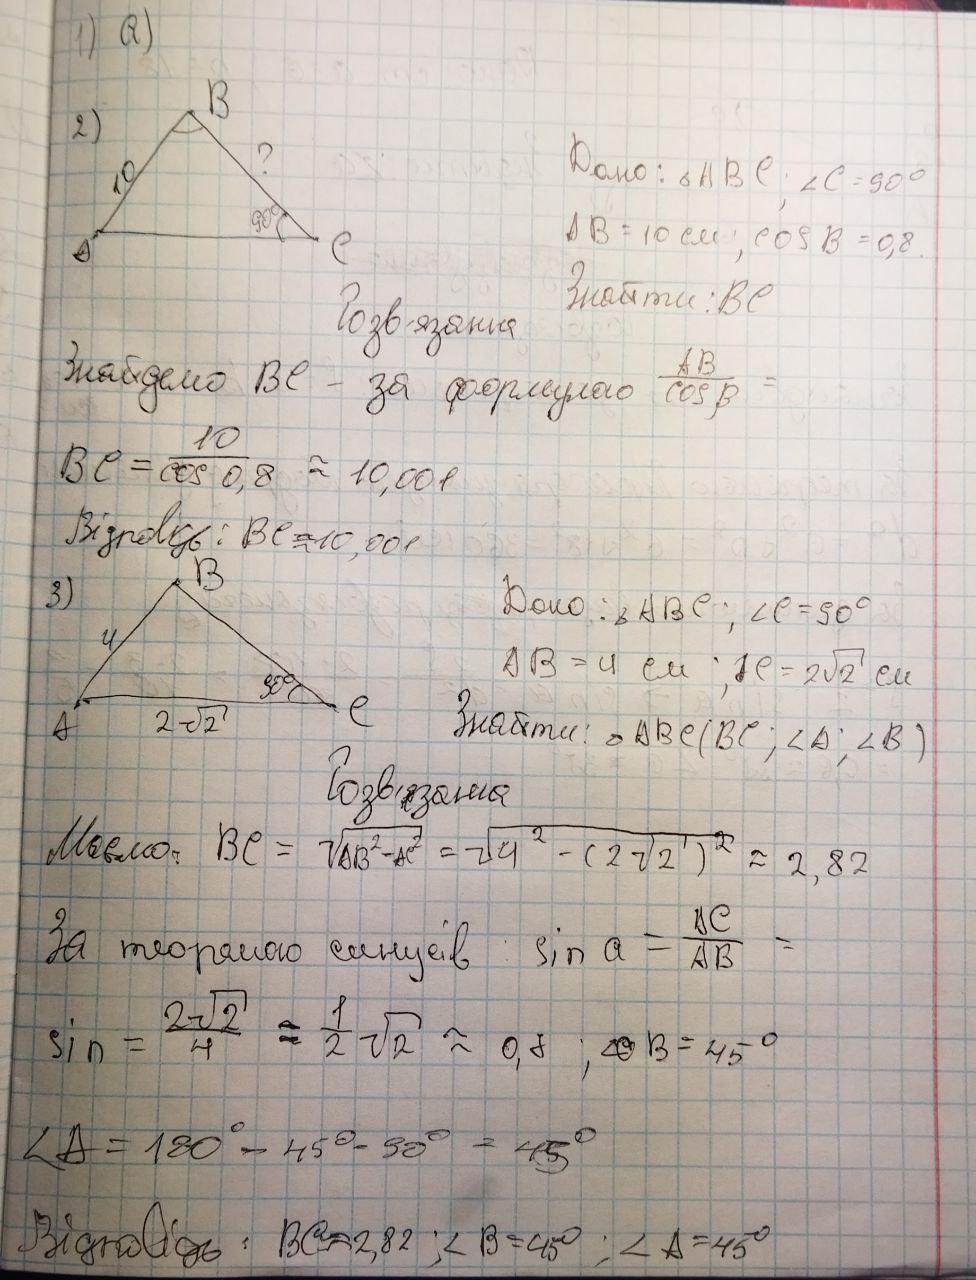 1) a)
2)
B
10
?
90°
A
C
Дано: △ABC; ∠C=90°
AB=10 см; cos B=0,8.
Знайти: BC
Розв'язання
Знайдемо BC – за формулою AB/cos β =
BC = 10/cos 0,8 ≈ 10,001
Відповідь: BC≈10,001
3)
B
4
90°
A
2√2
C
Дано: △ABC; ∠C=90°
AB=4 см; AC=2√2 см
Знайти: △ABC(BC; ∠A; ∠B)
Розв'язання
Маємо: BC = √AB²-AC² = √4²-(2√2)² ≈ 2,82
За теорамою синусів: sin a = AC/AB =
sin = 2√2/4 = 1/2 √2 ≈ ; ∠B=45°
∠A = 180° - 45° - 90° = 45°
Відповідь: BC≈2,82; ∠B=45°; ∠A=45°